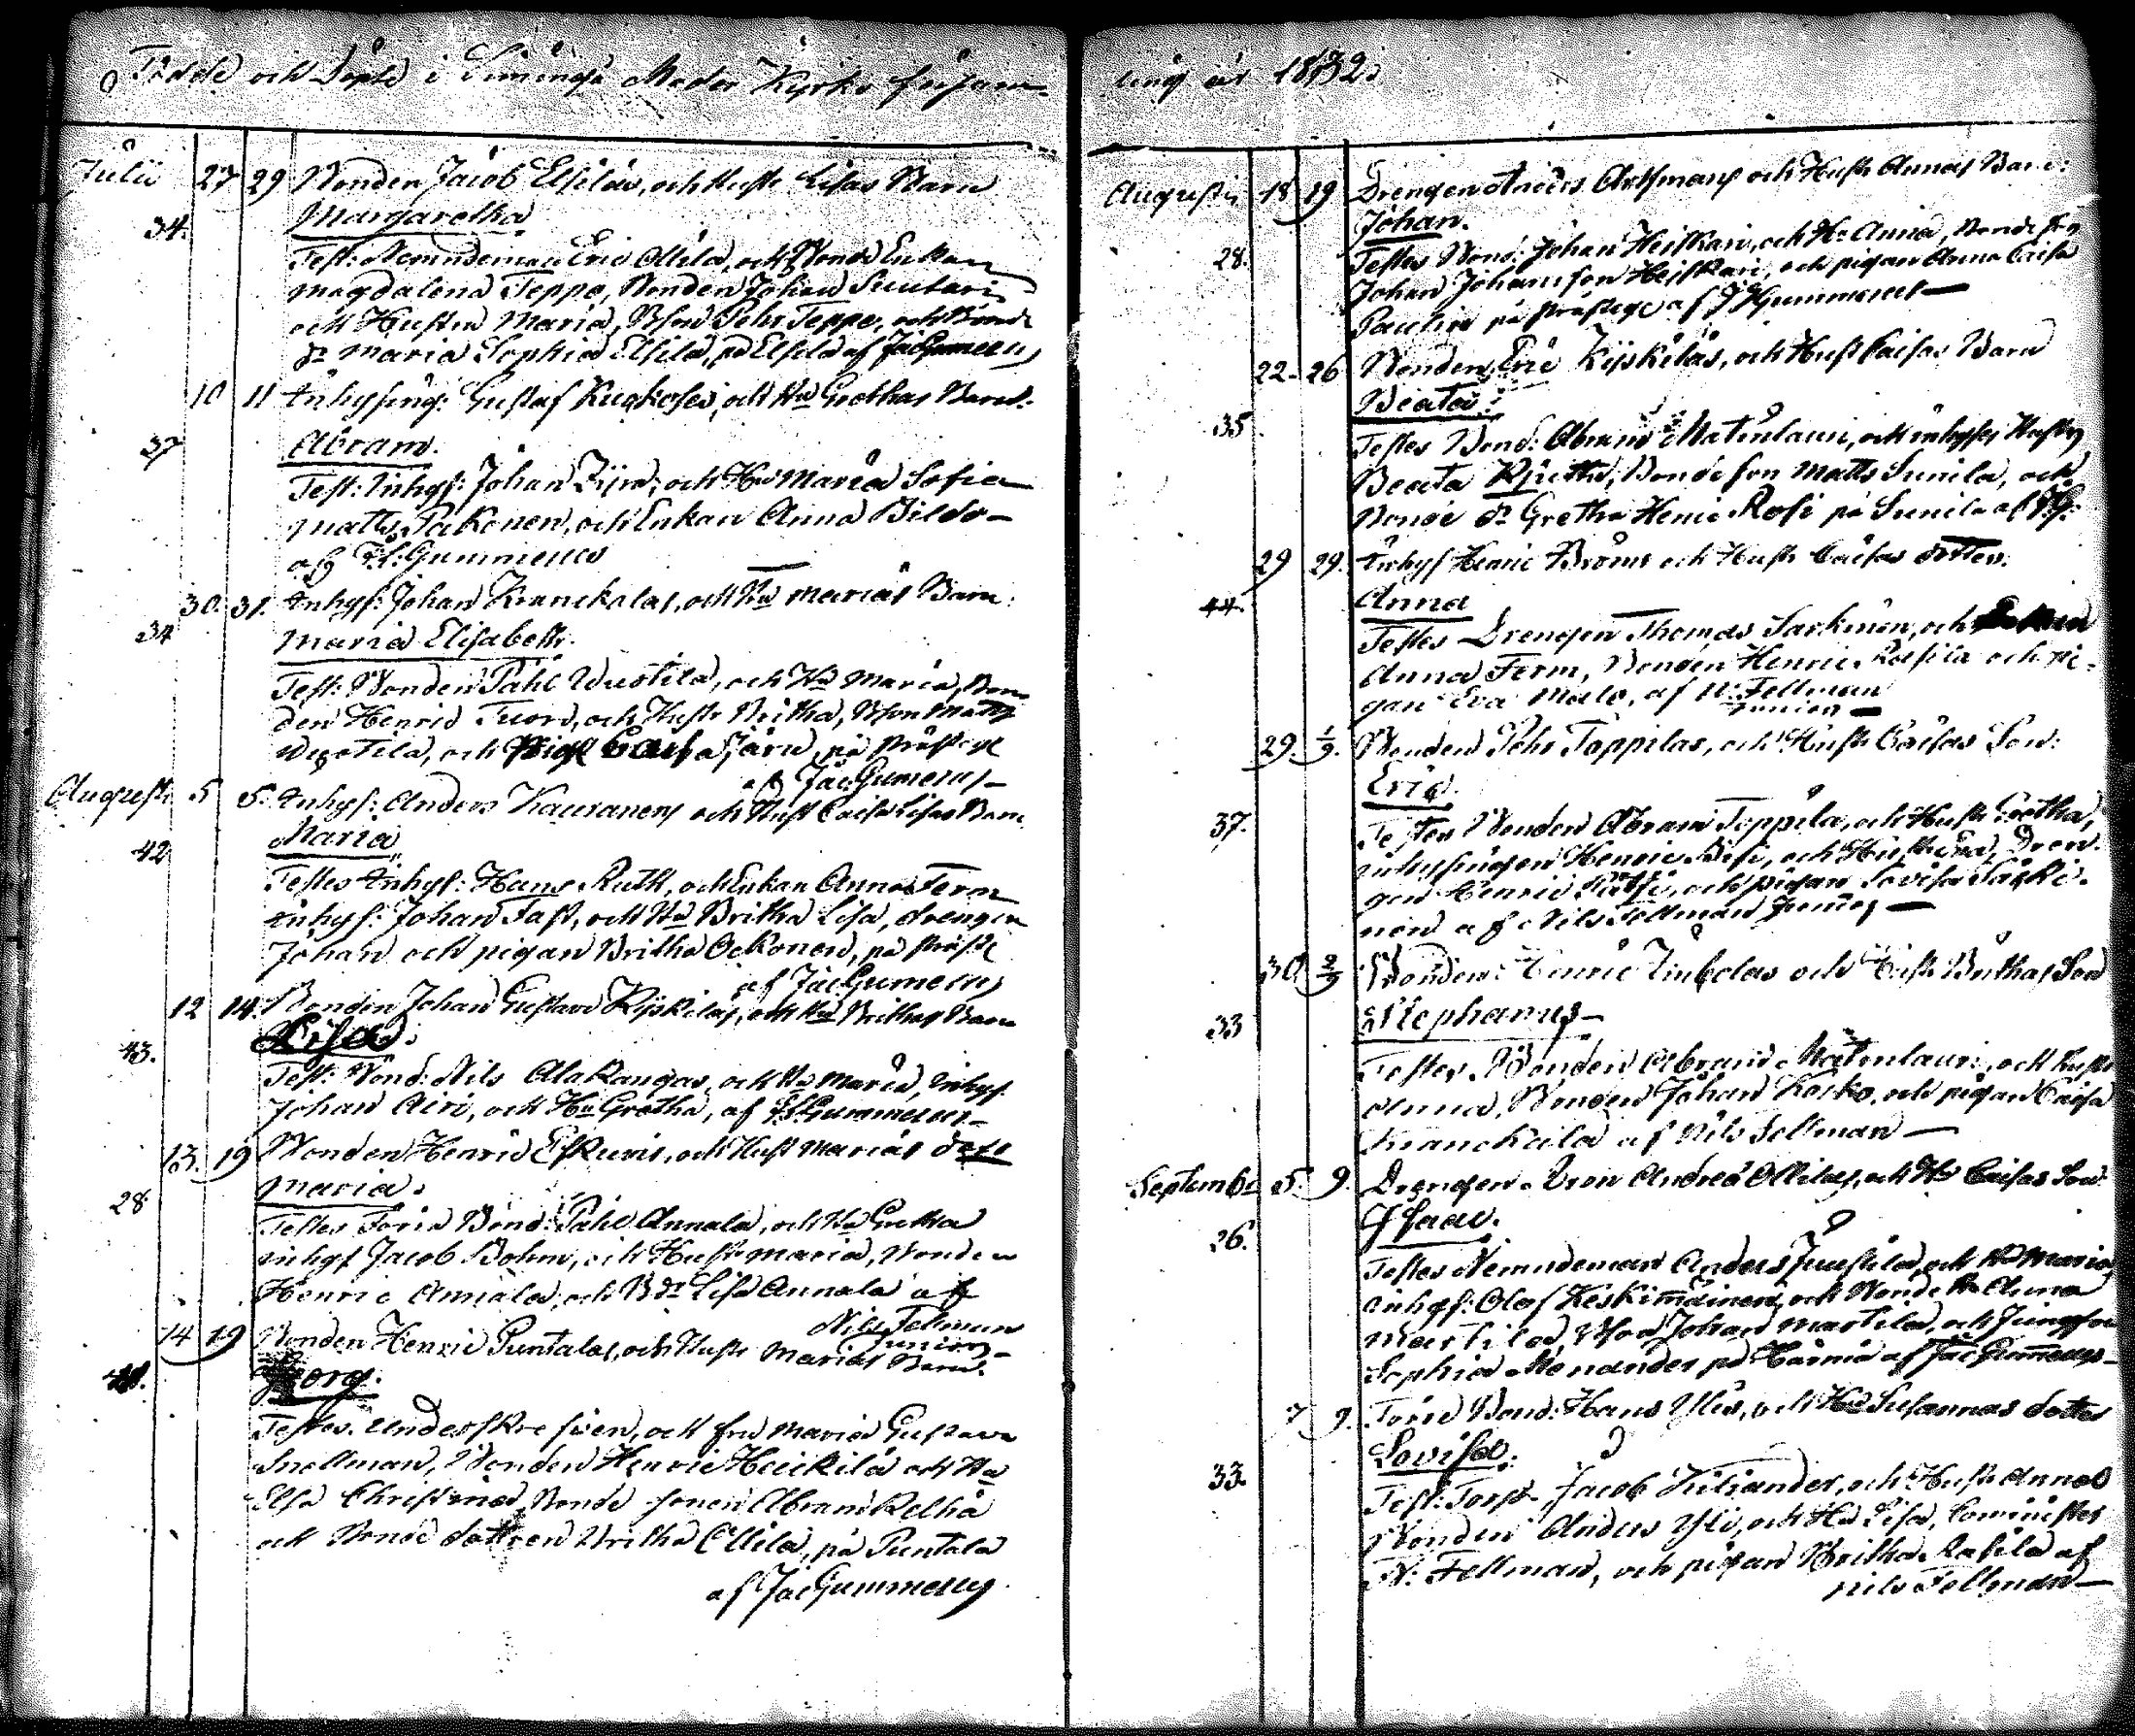 Födde och Döpte i Limingo Moder Kyrko församling år 1832.
Julii 27 29 Bonden Jacob Elsiläs, och Hustr Lisas Barn
34. Margaretha
Test: Nemndeman Eric Ollila, och Bonde Enkan
Magdalena Teppo, Bonden Johan Suutari
och Hustru Maria, Bson Pehr Teppo, och Bonde
dr Maria Sophia Elsilä, på Elsilä af Jac Gummerus
10 11 Inhysing: Gustaf och Ha Grethas Barn:
37 Abram.
Test: Inhys: Johan och Hu Maria Sofia
Matts Pakonen, och Enkan Anna
af F: Gummerus
30. 31. Inhys: Johan Kranckalas, och Hu Marias Barn:
34 Maria Elisabeth.
Test: Bonden Påhl Wuotila, och Hu Maria, Bon
den Henric Tuori, och Hustr Britha, Bson Matts
Wuotila, och Pig Caisa Järvi, på Prästg
af Jac Gumerus
Augusti 5 5. Inhys: Anders Kauranens och Hust Caisa Lisas Barn
42 Maria
Testes Inhys: Hans Ruth, och Enkan Anna Term
Inhys: Johan Fast, och Hu Britha Lisa, drengen
Johan och pigan Britha Ockonen, på Prästg
af Jac Gumerus
12 14. Bonden Johan Gustav Kyskilas, och Hu Brithas Barn
43. Lisa.
Test: Bond: Nils Alakangas, och Hu Maria, Inhys
Johan Airi, och Hu Gretha, af Gummerus
13. 19 Bonden Henric Eskuris, och Hust Marias dotr
28 Maria.
Testes Förra Bond: Påhl Annala, och Hu Gretha
inhys Jacob Bohm, och Hustr Maria, Bonden
Henric Annala, och B dr Lisa Annala af
Nils Fellman
Junior
14 19 Bonden Henric Puntalas, och Hustr Marias Barn.
Georg.
Testes. Underskrefven, och fru Maria Gustava
Snellman, Bonden Henric Heickilä och Hu
Elsa Christina, Bonde sonen Abram Kelhä
och Bonde dottren Britha Ollila, på Puntala
af Jac Gummerus
Augusti 18 19 Drengen Anders och Hustr Annas Barn:
28. Johan.
Testes Bond: Johan Heiskari, och Hu Anna, Bonde son
Johan Johansson Heiskari, och pigan Anna Caisa
på Prästg af J Gummerus
22. 26 Bonden Eric Kyskiläs, och Hust Caisas Barn
35 Beata.
Testes Bond: Abram Matinlauri, och inhyses Hustru
Beata Bonde son Matts Sunila, och
Bonde dr Gretha Henric Rosi på Sunila af
29 29. Inhys Henric Broms och Hustr Caisas dotter.
44. Anna
Testes Drengen Thomas Sarkinen, och
Anna Term, Bonden Henric Rossila och pi-
gan Eva Malo, af N: Fellman
Junior
29. 1/9. Bonden Pehr Toppilas, och Hustr Caisas Son:
37. Eric.
Testes Bonden Abram Toppila, och Hustr Gretha,
inhysingen Henric och Hustr Dren-
gen Henric och pigan Lovisa Särki-
nen af Nils Fellman Junior
30 2/9 Bonden Henric och Hustr Brithas Son
33 Stephanus
Testes, Bonden Abram Matinlauri, och Hustr
Anna, Bonden Johan Kosko, och pigan Caisa
Kranckala af Nils Fellman
Septembr 5. 9. Drengen Andrea Ollilas, och Hu Caisas Son:
26. Isaac.
Testes Nemndeman Anders Juustila, och Hu Maria
inhys: Olof Keskimäinen, och Bonde Hu Anna
Martila, Bson Johan Martila, och Jungfru
Sophia Menander på af Jac Gummerus
7 9. Förre Bond: Hans Ylis, och Hu Susannas dotter
33. Lovisa.
Test: Torp. Jacob Kiliander, och Hustr Anna
Bonden Anders Yli, och Hu Lisa, Cominister
N: Fellman, och pigan Britha Rasila af
Nils Fellman